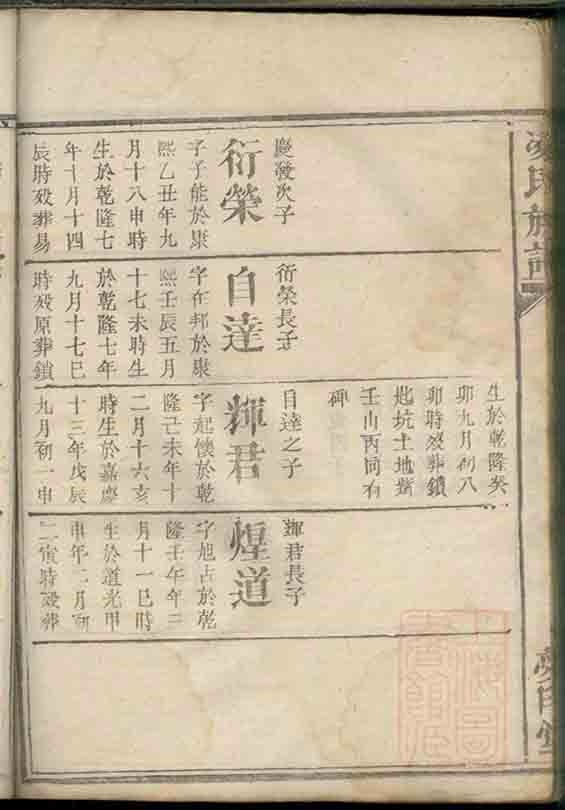 氏族譜
慶發次子
衍榮
字子能於康
熙乙丑年九
月十八申時
生於乾隆七
年十月十四
辰時歿葬易
衍榮長子
自達
字在邦於康
熙壬辰五月
十七未時生
於乾隆七年
九月十七巳
時歿原葬鎖
生於乾隆癸
卯九月初八
卯時歿葬鎖
匙坑土地鷲
壬山丙同有
碑
自達之子
輝君
字起懷於乾
隆己未年十
二月十六亥
時生於嘉慶
十三年戊辰
九月初一申
輝君長子
煌道
字旭占於乾
隆壬午年三
月十一巳時
生於道光甲
申年二月初
二寅時歿葬